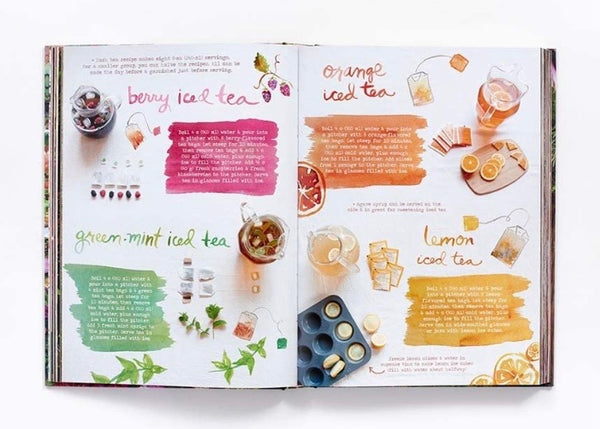 * Each tea recipe makes eight 8oz (240 ml) servings.
For a smaller group, you can halve the recipes. All can be
made the day before & garnished just before serving.
berry iced tea
Boil 4 c (960 ml) water & pour into
a pitcher with 8 berry-flavored
tea bags. Let steep for 10 minutes,
then remove tea bags & add 4 c
(960 ml) cold water, plus enough
ice to fill the pitcher. Add ½ c
of fresh raspberries & fresh
blackberries to the pitcher. Serve
tea in glasses filled with ice.
green-mint iced tea
Boil 4 c (960 ml) water &
pour into a pitcher with
4 mint tea bags & 4 green
tea bags. Let steep for
10 minutes, then remove
tea bags & add 4 c (960
ml) cold water, plus enough
ice to fill the pitcher.
Add 3 fresh mint sprigs to
the pitcher. Serve tea in
glasses filled with ice.
orange
iced tea
Boil 4 c (960 ml) water & pour into
a pitcher with 8 orange-flavored
tea bags. Let steep for 10 minutes,
then remove tea bags & add 4 c
(960 ml) cold water, plus enough
ice to fill the pitcher. Add slices
from 1 orange to the pitcher. Serve
tea in glasses filled with ice.
* agave syrup can be served on the
side & is great for sweetening iced tea
lemon
iced tea
Boil 4 c (960 ml) water &
pour into a pitcher with 8 lemon-
flavored tea bags. Let steep for
10 minutes, then remove tea bags
& add 4 c (960 ml) cold water, plus
enough ice to fill the pitcher.
Serve in wide-mouthed glasses
or jars with lemon ice cubes.
freeze lemon slices & water in
cupcake tins to make lemon ice cubes
fill with water about halfway